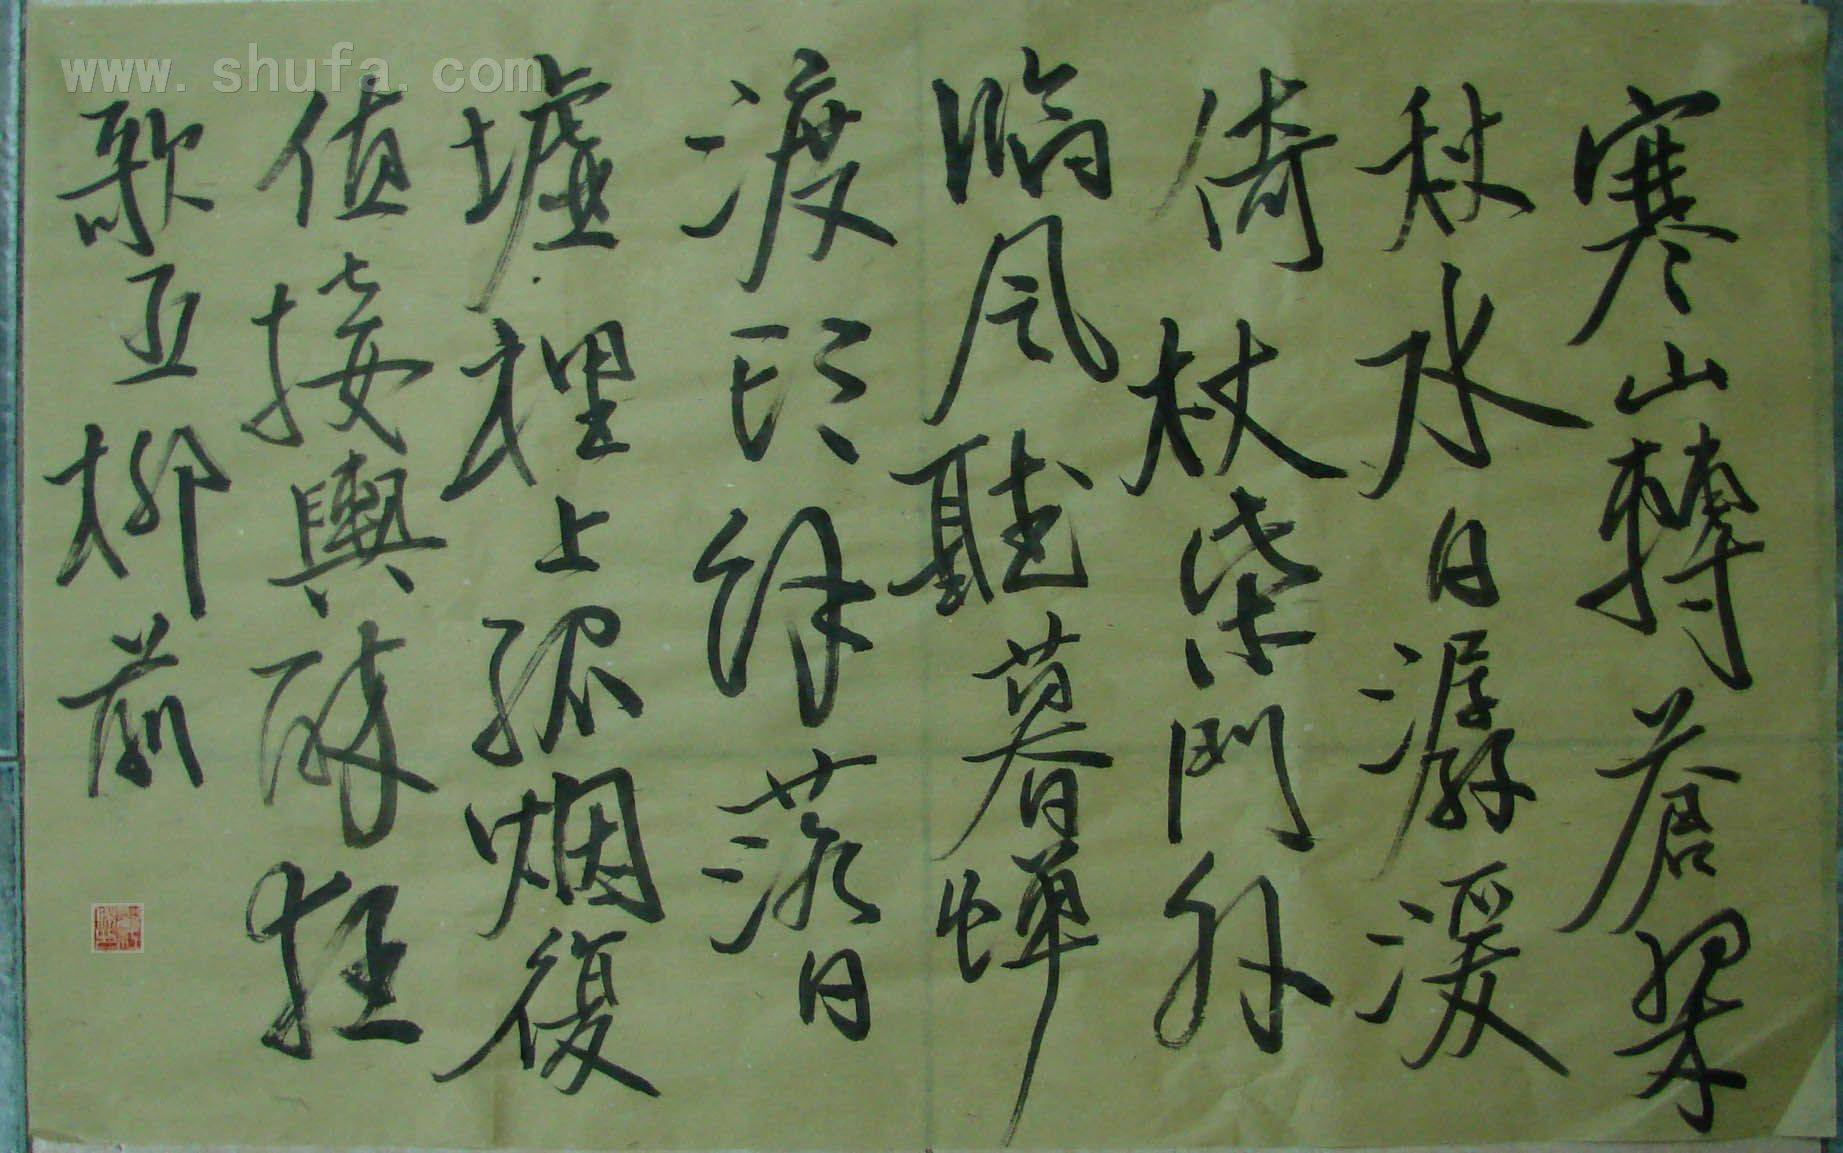 www.shufa.com
寒山轉蒼翠
秋水日潺湲
倚杖柴門外
临风聽暮蝉
渡头餘落日
墟裡上孤烟復
值接輿醉狂
歌五柳前